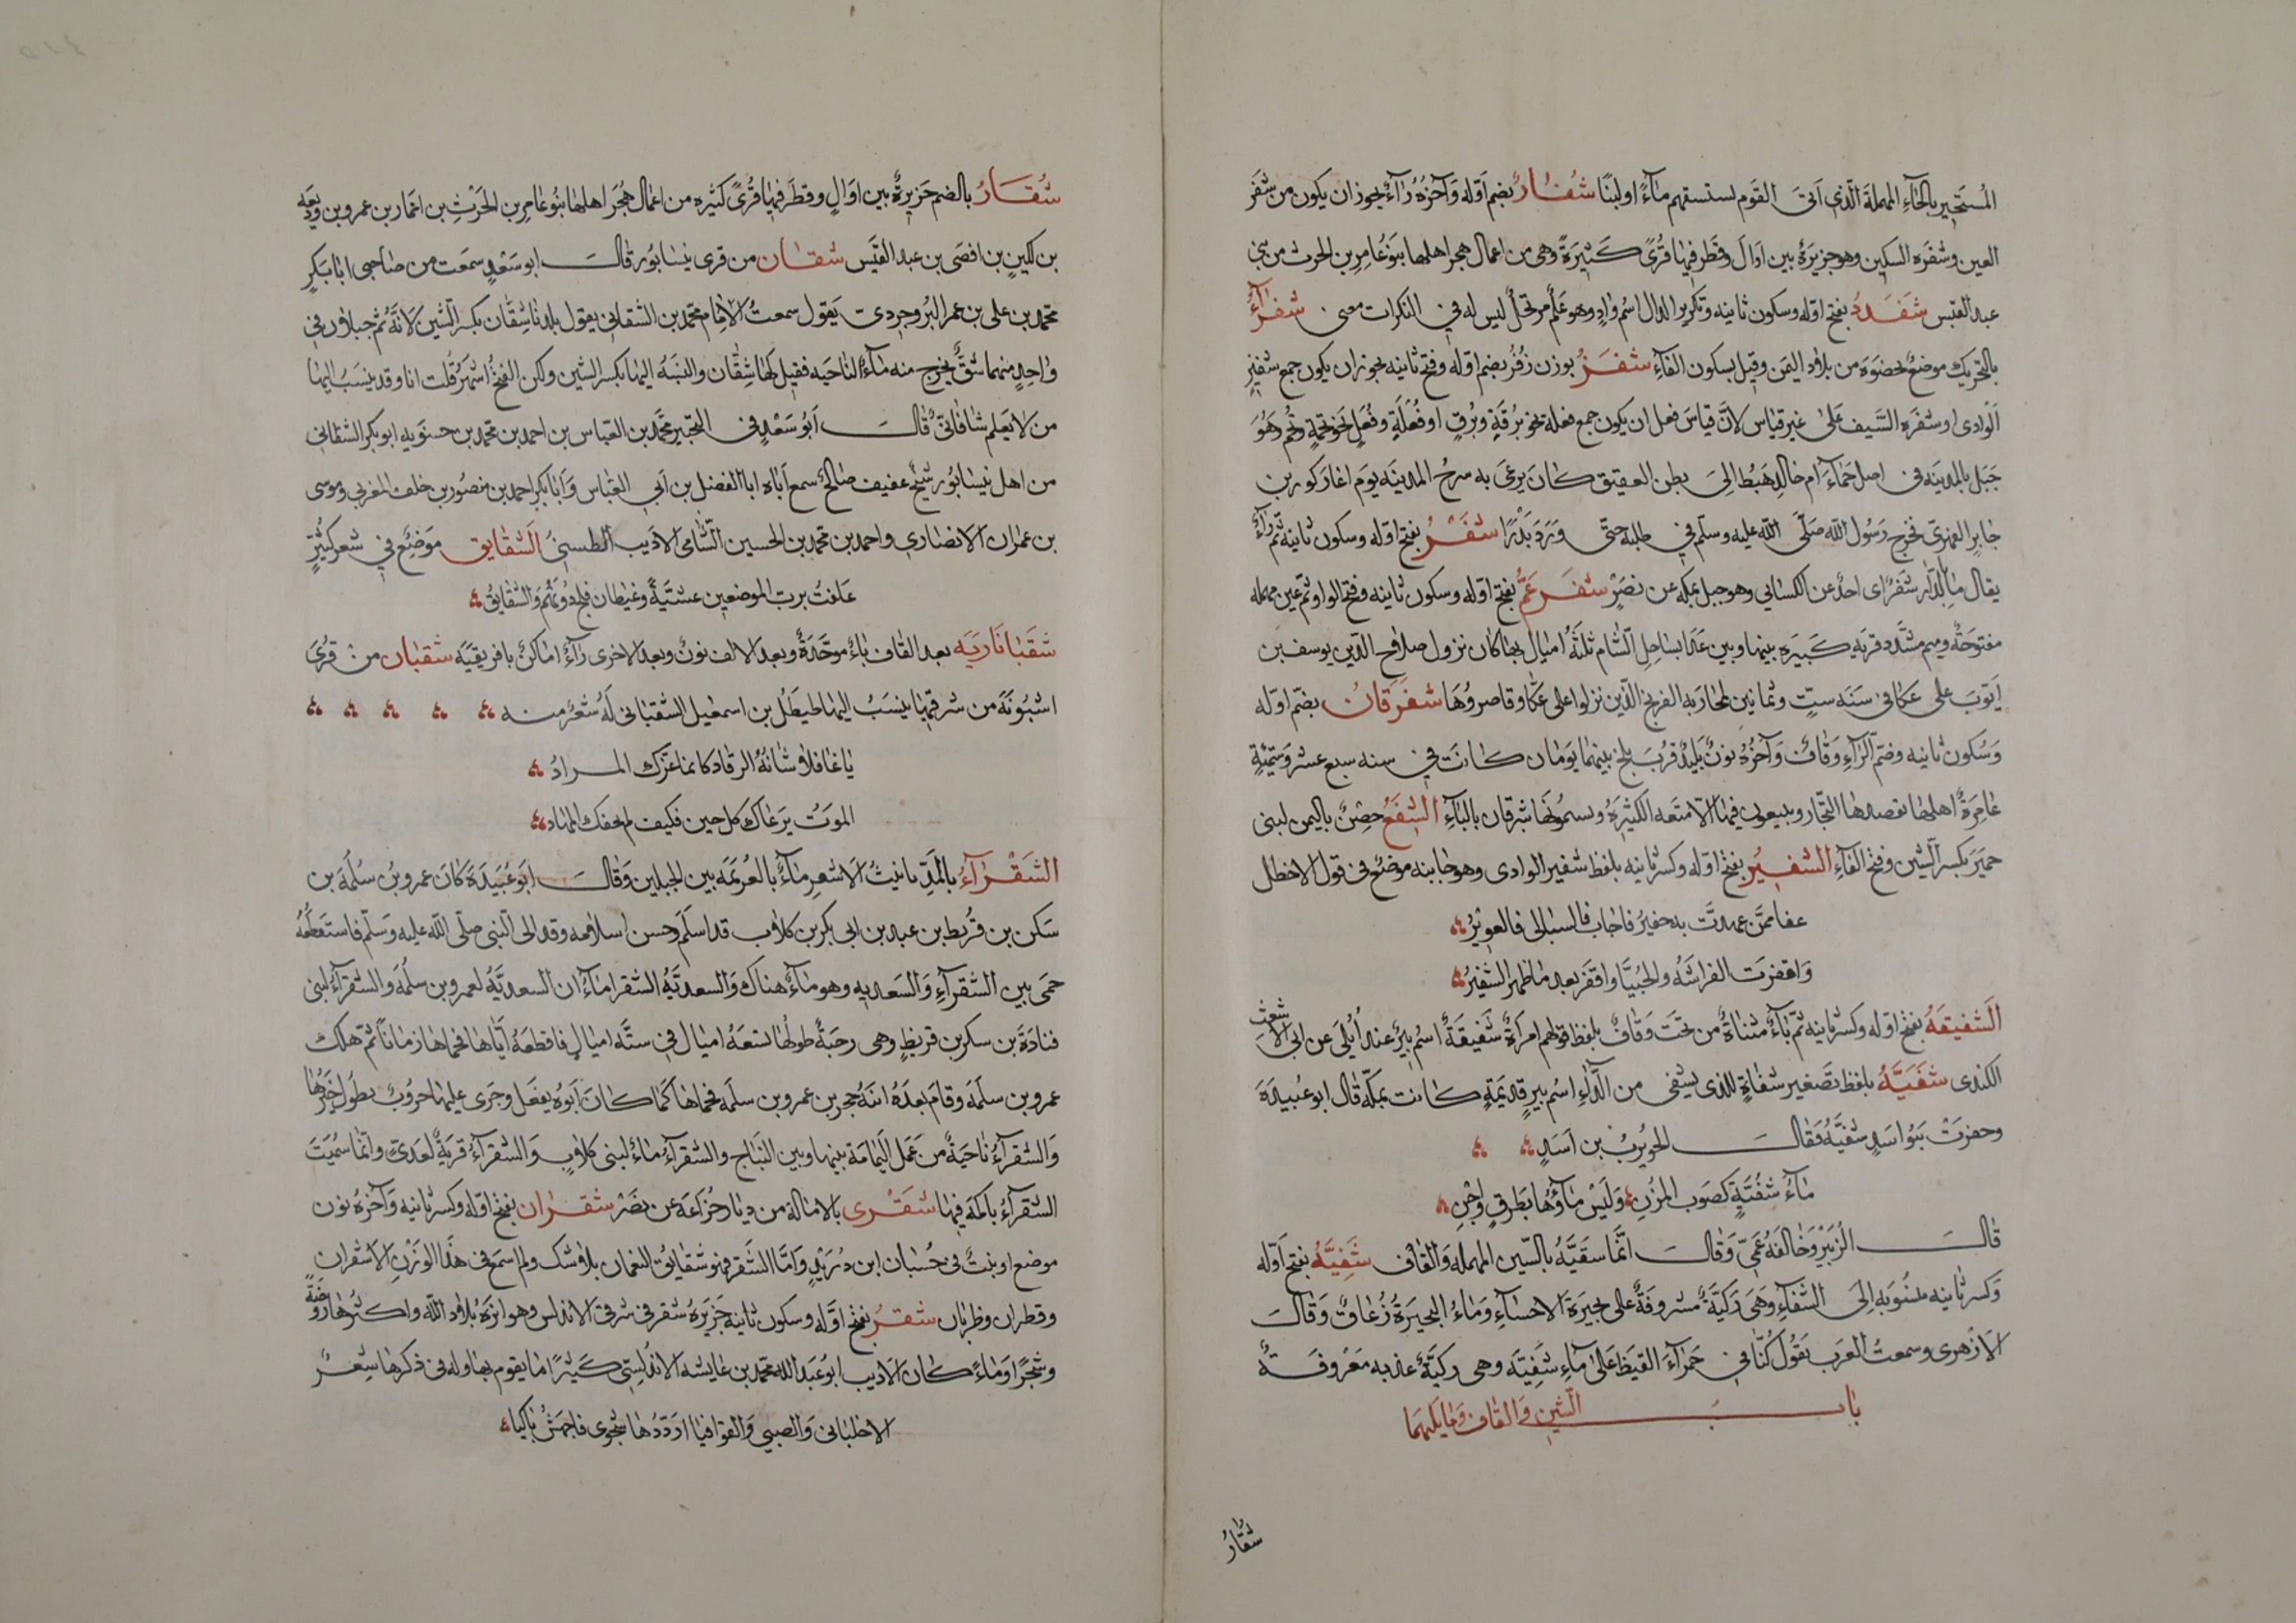 المُستَجِير بالحآءِ المهملة الّذي اتى القوم لسـتسقيهم مآءً او لبنًا شُفَارُ بضم اوّله وآخره رآءٌ يجوز ان يكون من شفر
العين وشفره السكين وهو جزيرةٌ بين اوال وقطر فيها قُرًى كثيرة وهى من اعمال هجر اهلها بنو عامر بن الحرث من بنى
عبد القيس شَفَدَدُ بفتح اوّله وسكون ثانيه وتكرير الدال اسم وادٍ وهو علم مرتجل ليس له فى النكرات معنى شفرآءُ
بالتحريك موضعٌ بحضوة من بلاد اليمن وقيل بسكون الفآءِ شُفَرُ بوزن زُفَر بضم اوّله وفتح ثانيه يجوز ان يكون جمع شفير
الوادى او شفره السّيف على غير قياس لانّ قياس فعل ان يكون جمع فعلة نحو برقةٍ وبرقٍ او فُعَلةٍ وفُعَلٍ نحو تخمةٍ وتخم وهو
جبل بالمدينه فى اصل حمآءَ ام خالد هبط الى بطن العقيق كان يرعى به سرح المدينه يوم اغار كرز بن
جابر الفهرى فخرج رسول الله صلّى الله عليه وسلّم فى طلبه حتى ورد بدرًا شَفْرُ بفتح اوّله وسكون ثانيه ثم رآءٌ
يقال ما بالدّار شفرٌ اى احدٌ عن الكسائى وهو جبل بمكه عن نصرٍ شفرعَمُّ بفتح اوّله وسكون ثانيه وفتح الواو ثم عين مهمله
مفتوحةٌ وميم مشدّد قريه كبيره بينها وبين عكا بساحل الشام ثلثةُ اميال بها كان نزول صلاح الدّين يوسف بن
ايّوب على عكا فى سنه ستٍ وثمانين لمحاربه الفرنج الّذين نزلوا على عكّا وحاصروها شفرقان بضم اوّله
وسكون ثانيه وضم الرآءِ وقافٌ وآخره نون بُليد قرب بلخ بينهما يومان كانت فى سنه سبع عشر وستمئةٍ
عامرةً اهلها تقصدها التجّار ويبيعون فيها الامتعه الكثيرة ويسمونها شبرقان بالباءِ الشِفَعُ حصن باليمن لبنى
حمير بكسر الشين وفتح الفآءِ الشفيرُ بفتح اوّله وكسر ثانيه بلفظ شفير الوادى وهو جانبه موضع فى قول الاخطل
عفا ممّن عهدت به حفير فاجاب فالسبالى فالعويرُ
واقفرت الفراشةُ والحُبيّا واقفر بعد فاطمه الشفيرُ
الشفيقةُ بفتح اوّله وكسر ثانيه ثم يآءٌ مثناةٌ من تحت وقافٌ بلفظ قولهم امراةٌ شفيقةٌ اسم بيرٌ عند اُبلى عن ابى الاشعث
الكندى شفَيّةُ بلفظ تصغير شفاةٍ للذى يشفى من الدآءِ اسم بيرٍ قديمةٍ كانت بمكّه قال ابو عبيدة
وحفرت بنو اسدٍ شفيّةُ فقال الحويرب بن اسدٍ
مآءُ شفيّةٍ كصوب المزن وليس مآؤها بطرقٍ اجنِ
قال الزبير وخالفهُ عمّى وقال انّما سقيّةُ بالسّين المهمله والقاف شَفِيّةُ بفتح اوّله
وكسر ثانيه منسوبه الى الشفآءِ وهى ركيّةٌ مشروفةٌ على بحيرة الاحسآءِ ومآءُ البحيرةُ زعاقٌ وقال
الازهرى وسمعت العرب يقول كُنّا فى حمرآءَ القيظ على مآءِ شفيّه وهى ركيّةٌ عذبه معروفةٌ
بابُ الشين والقاف وما يليهما
شقارُ
شُقَارُ بالضم جزيرةٌ بين اوالٍ وقطر فيها قرًى كثيره من اعمال هجر اهلها بنو عامر بن الحرث بن انمار بن عمرو بن وديعه
بن لكيز بن افصى بن عبد القيس شقان من قرى نيسابور قال ابو سعدٍ سمعت من صاحبى ابا بكرٍ
محمد بن على بن عمر البروجردى يقول سمعت الامام محمد بن الشقانى يقول بلدنا شِقّان بكسر الشين لانهُ ثم جبلان فى
واحدٍ منهما شقٌ يخرج منه مآءُ الناحيه فقيل لها شِقّان والنسبهُ اليها بكسر الشين ولكن الفتح اشهر قلت انا وقد ينسب اليها
من لا يعلم شاقانى قال ابو سعدٍ فى التحبير محمد بن العباس بن احمد بن محمد بن حسنويه ابو بكر الشقانى
من اهل نيسابور شيخ عفيف صالح سمع اباه ابا الفضل بن ابى العبّاس وابا بكر احمد بن منصور بن خلف المغربى وموسى
بن عمران الانصارى واحمد بن محمد بن الحسين الشامى الاديب الطبسىُ الشقايق موضع فى شعر كثيرٍ
علفت برب الموضعين عشيّةً وغيطان فلجٍ دونهم والشقايقُ
شقبانَاريَه بعد القاف بآءٌ موحّدةٌ وبعد الالف نون وبعد الاخرى رآءٌ اماكن بافريقيّه شقبان من قرى
اشبونة من شرقيها ينسب اليها طيطل بن اسمعيل الشقبانى لهُ شعر منه
يا غافلا شانهُ الرقاد كانما غرّك المراد
الموت يرعاك كل حين فكيف لم يجفك المهاد
الشَقْرآءُ بالمدّ تانيث الاشعر مآءٌ بالعريمة بين الجبلين وقال ابو عبيدة كان عمرو بن سلمة بن
سكن بن قريط بن عبد بن ابى بكر بن كلاب قد اسلم وحسن اسلامه وفد الى النبى صلّى الله عليه وسلّم فاستقطعهُ
حمى بين الشقرآءِ والسعديه وهو مآءٌ هناك والسعديّة الشقرا مآءان السعديّةُ لعمرو بن سلمة والشقرآءُ لبنى
قتادة بن سكن بن قريط وهى رحبةٌ طولها تسعة اميال فى ستّه اميال فاقطعهُ ايّاها فحماها زمانًا ثم هلك
عمرو بن سلمة وقام بعدهُ ابنهُ حجر بن عمرو بن سلمه فحماها كما كان ابوه يفعل وجرى عليها حروب يطول خبرها
والشقرآءُ ناحيةٌ من عمل اليمامة بينها وبين النباج والشقرآءُ مآءٌ لبنى كلاب والشقرآءُ قريةٌ لعدىّ وانّما سمّيت
الشقرآءُ باكمة فيها شقرى بالامالة من ديار خزاعة عن نصر شقران بفتح اوّله وكسر ثانيه وآخره نون
موضع او نبتٌ فى حسبان ابن دريدٍ وامّا الشقر فهو شقايق النعمان بلا شك ولم اسمع فى هذا الوزن الا شقران
وقطران وظربان شقرُ بفتح اوّله وسكون ثانيه جزيرة شقر فى شرقى الاندلس وهو انزه بلاد الله واكثرها روضةً
وشجرًا ومآءً كان الاديب ابو عبد الله محمد بن عايشه الاندلسى كثيرًا ما يقوم بها وله فى ذكرها شعر
الا خليانى والصبى والقوافيا ارددها شجوى فاجهش باكيا